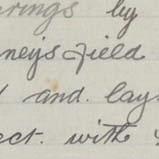 erings by
ney's field
and lays
ect. with